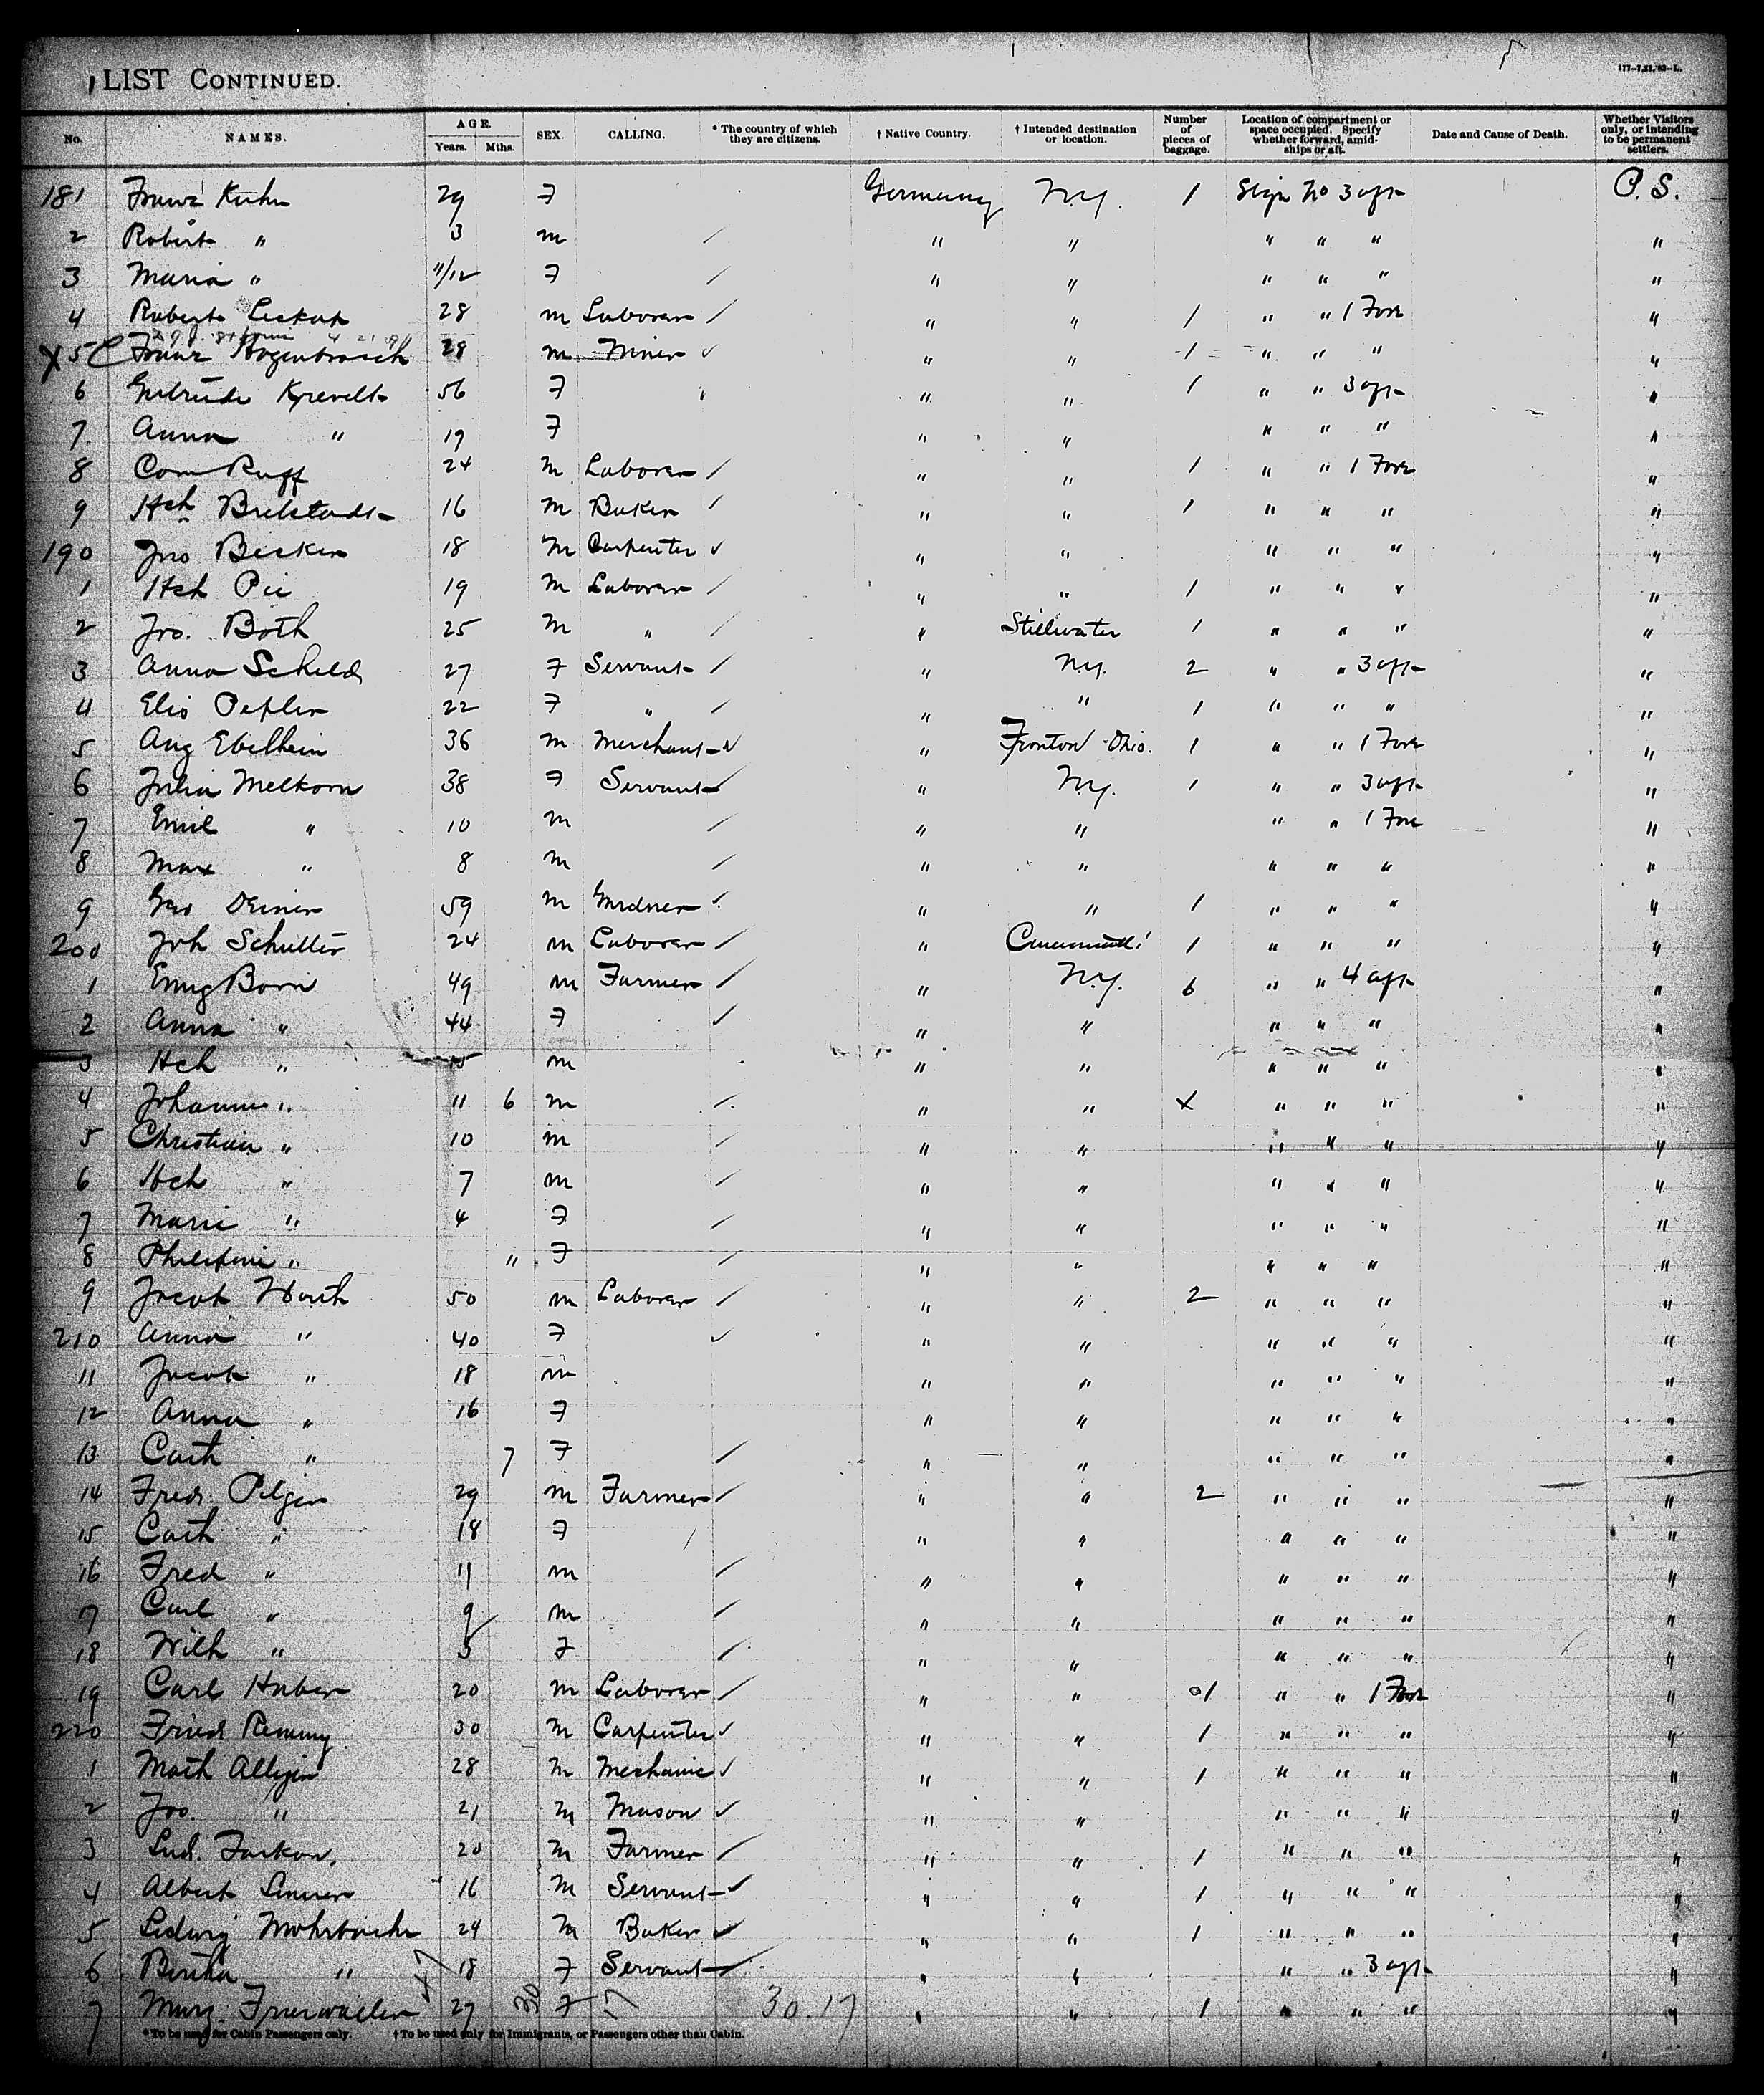 LIST CONTINUED.
177—7,21,'93—L.
No. NAMES. AGE. Years. Mths. SEX. CALLING. * The country of which they are citizens. † Native Country. † Intended destination or location. Number of pieces of baggage. Location of compartment or space occupied. Specify whether forward, amidships or aft. Date and Cause of Death. Whether Visitors only, or intending to be permanent settlers.
181 Franz Kuhn 29 F Germany N.Y. 1 No 3 aft P.S.
2 Robert " 3 m " " " " " "
3 Maria " 11/12 F " " " " " "
4 Robert 28 m Laborer " " 1 " " 1 Fore "
X 5 Franz Hogenbrosch 28 m Miner " " 1 " " " "
6 Gertrude Krevelt 56 F " " 1 " " 3 aft "
7. Anna " 19 F " " " " " "
8 Ruff 24 m Laborer " " 1 " " 1 Fore "
9 Hch 16 m Baker " " 1 " " " "
190 Jno Becker 18 m Carpenter " " " " " "
1 Hch Pii 19 m Laborer " " 1 " " " "
2 Jro. Both 25 m " " Stillwater 1 " " " "
3 Anna Scheld 27 F Servant " N.Y. 2 " " 3 aft "
4 Elis Pepler 22 F " " " 1 " " " "
5 Aug Ebelhein 36 m Merchant " Ironton Ohio. 1 " " 1 Fore "
6 Julia Melkorn 38 F Servant " N.Y. 1 " " 3 aft "
7 Emil " 10 m " " " " 1 Fore "
8 Max " 8 m " " " " " "
9 Geo Deiner 59 m Gardner " " 1 " " " "
200 Joh Schutter 24 m Laborer " Cincinnati 1 " " " "
1 Born 49 m Farmer " N.Y. 6 " " 4 aft "
2 Anna " 44 F " " " " " "
3 Hch " 15 m " " " " " "
4 Johannes " 11 6 m " " X " " " "
5 Christian " 10 m " " " " " "
6 Hch " 7 m " " " " " "
7 Marie " 4 F " " " " " "
8 Philipine " " F " " " " " "
9 Jacob 50 m Laborer " " 2 " " " "
210 Anna " 40 F " " " " " "
11 Jacob " 18 m " " " " " "
12 Anna " 16 F " " " " " "
13 Cath " 7 F " " " " " "
14 Fred. Pilger 29 m Farmer " " 2 " " " "
15 Cath " 18 F " " " " " "
16 Fred " 11 m " " " " " "
17 Carl " 9 m " " " " " "
18 Wilh " 5 F " " " " " "
19 Carl Huber 20 m Laborer " " 1 " " 1 Fore "
220 Fried Remmy 30 m Carpenter " " 1 " " " "
1 Math Alligier 28 m Mechanic " " 1 " " " "
2 Jos. " 21 m Mason " " " " " "
3 Lud. Farkon. 20 m Farmer " " 1 " " " "
4 Albert 16 m Servant " " 1 " " " "
5 Ludwig Mohrbacher 24 m Baker " " 1 " " " "
6 Bertha " 18 F Servant " " " " 3 aft "
7 Marg. Frierwaller 27 F 30.17 " " 1 " " " "
* To be used for Cabin Passengers only. † To be used only for Immigrants, or Passengers other than Cabin.